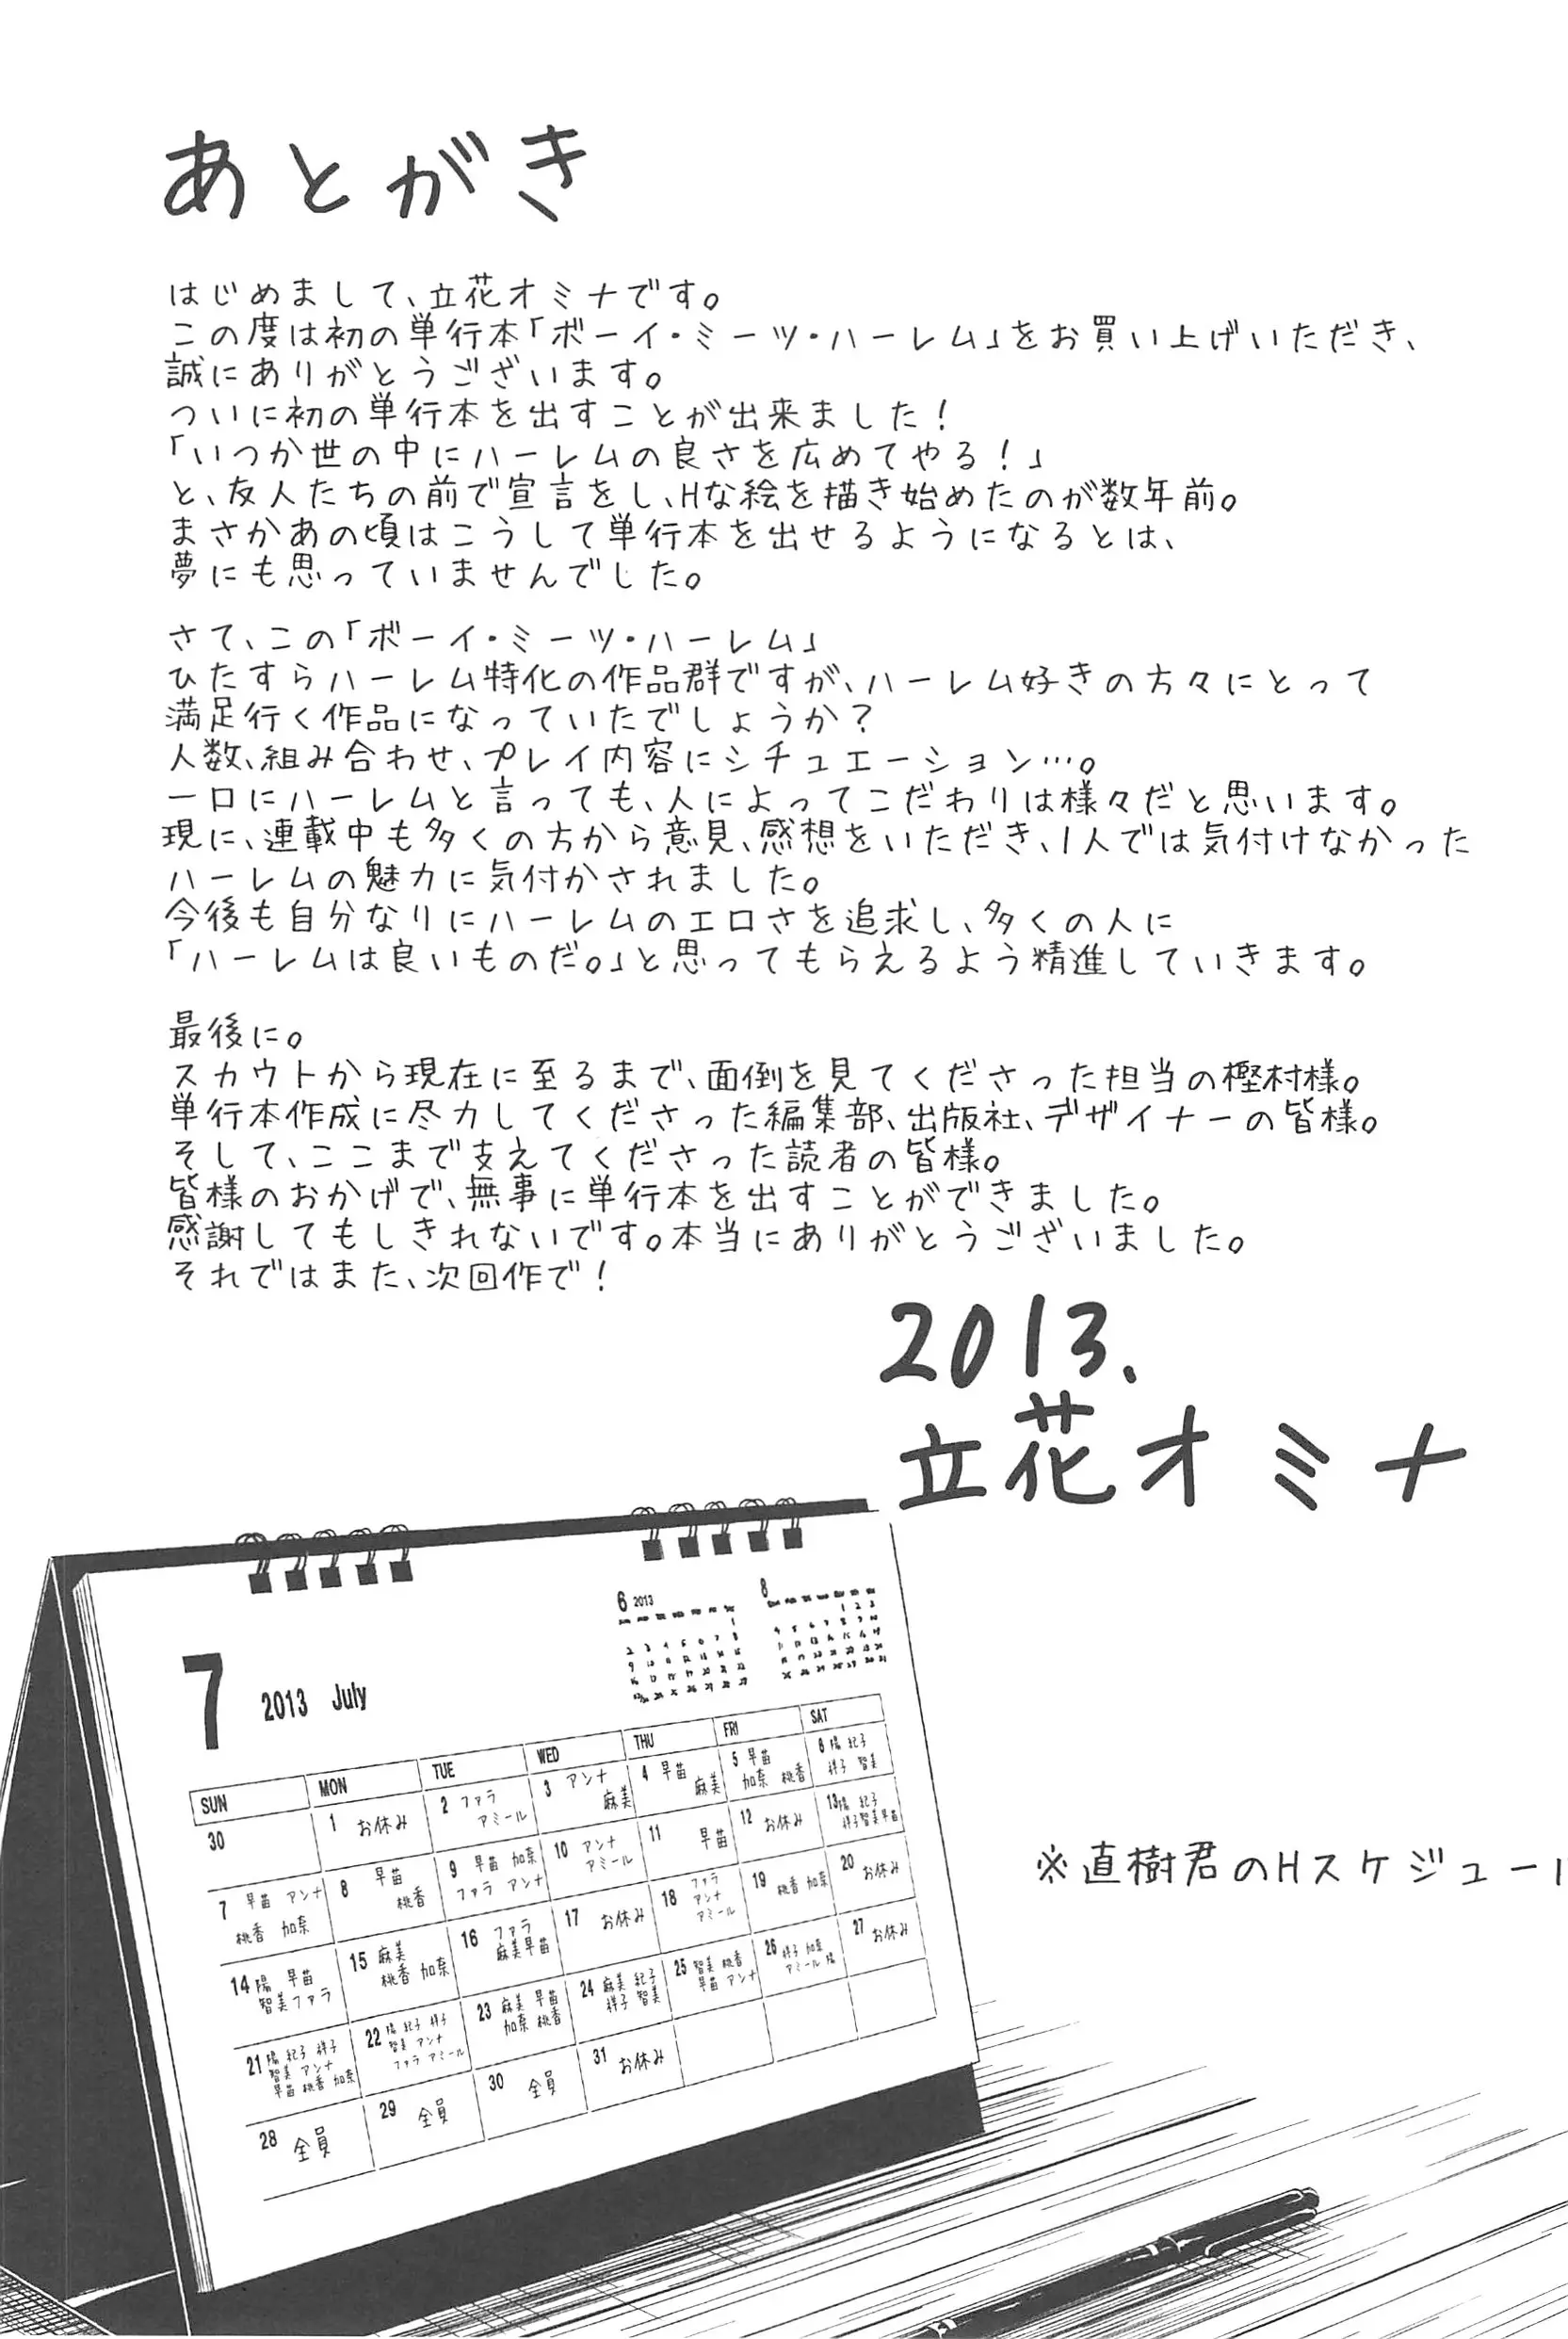 あとがき
はじめまして、立花オミナです。
この度は初の単行本「ボーイ・ミーツ・ハーレム」をお買い上げいただき、
誠にありがとうございます。
ついに初の単行本を出すことが出来ました！
「いつか世の中にハーレムの良さを広めてやる！」
と、友人たちの前で宣言をし、Hな絵を描き始めたのが数年前。
まさかあの頃はこうして単行本を出せるようになるとは、
夢にも思っていませんでした。
さて、この「ボーイ・ミーツ・ハーレム」
ひたすらハーレム特化の作品群ですが、ハーレム好きの方々にとって
満足行く作品になっていたでしょうか？
人数、組み合わせ、プレイ内容にシチュエーション…。
一口にハーレムと言っても、人によってこだわりは様々だと思います。
現に、連載中も多くの方から意見、感想をいただき、1人では気付けなかった
ハーレムの魅力に気付かされました。
今後も自分なりにハーレムのエロさを追求し、多くの人に
「ハーレムは良いものだ。」と思ってもらえるよう精進していきます。
最後に。
スカウトから現在に至るまで、面倒を見てくださった担当の樫村様。
単行本作成に尽力してくださった編集部、出版社、デザイナーの皆様。
そして、ここまで支えてくださった読者の皆様。
皆様のおかげで、無事に単行本を出すことができました。
感謝してもしきれないです。本当にありがとうございました。
それではまた、次回作で！
2013.
立花オミナ
6 2013
8
7 2013 July
SUN MON TUE WED THU FRI SAT
30
1 お休み
2 ファラ
アミール
3 アンナ
麻美
4 早苗
麻美
5 早苗
加奈 桃香
6 陽 紀子
祥子 智美
7 早苗 アンナ
桃香 加奈
8 早苗
桃香
9 早苗 加奈
ファラ アンナ
10 アンナ
アミール
11 早苗
12 お休み
13 陽 紀子
祥子 智美 早苗
14 陽 早苗
智美 ファラ
15 麻美
桃香 加奈
16 ファラ
麻美 早苗
17 お休み
18 ファラ
アンナ
アミール
19 桃香 加奈
20 お休み
21 陽 紀子 祥子
智美 アンナ
早苗 桃香 加奈
22 陽 紀子 祥子
智美 アンナ
ファラ アミール
23 麻美 早苗
加奈 桃香
24 麻美 紀子
祥子 智美
25 智美 桃香
早苗 アンナ
26 祥子 加奈
アミール 陽
27 お休み
28 全員
29 全員
30 全員
31 お休み
※直樹君のHスケジュール